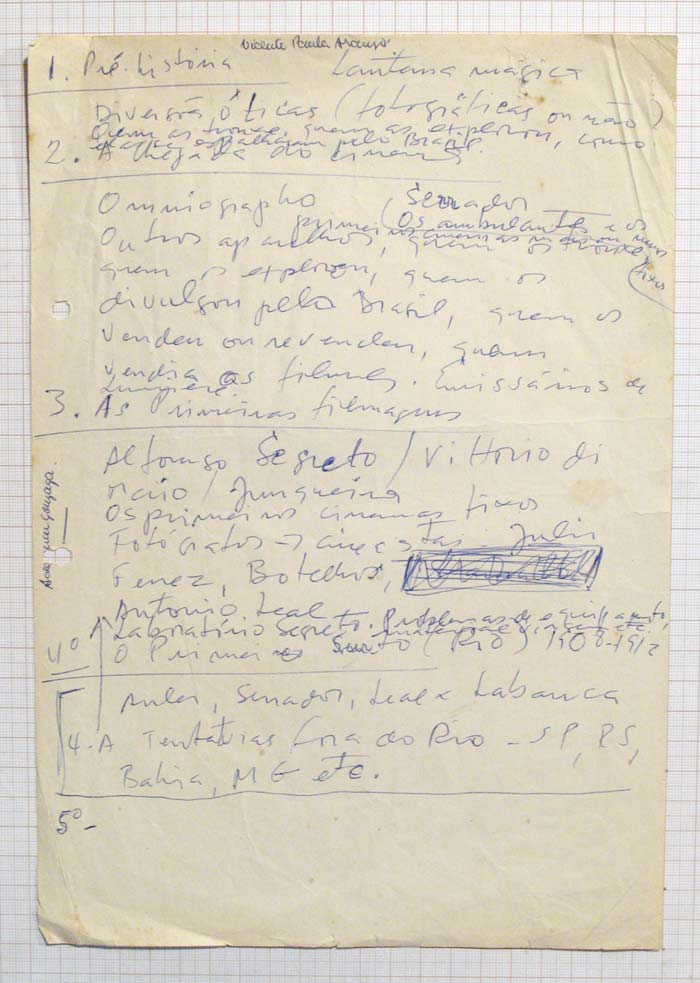 Vicente Paula Araujo
1. Pré-história Lanterna mágica
Diversão óticas (fotográficas ou não)
Quem as trouxe, quem as explorou, como
espalharam pelo Brasil.
2. A chegada do cinema
Omniographo Serrador
primeiros (Os ambulantes e os
Outros aparelhos, quem os trouxe,
fixos
quem os explorou, quem os
divulgou pelo Brasil, quem os
vendeu ou revendeu, quem
vendia os filmes. Emissários de
Lumière.
3. As Primeiras filmagens
Alfonso Segreto / Vittorio di
Maio / Junqueira
Os primeiros cinemas fixos
Fotógrafos → cineastas Julio
Ferrez, Botelhos,
Antonio Leal
Laboratório Segreto. Problemas de equipamento,
4º O Primeiro (Rio) 1908-1912
Auler, Serrador, Leal e Labanca
4.A Tentativas fora do Rio - SP, RS,
Bahia, MG etc.
5º-
Gonzaga.